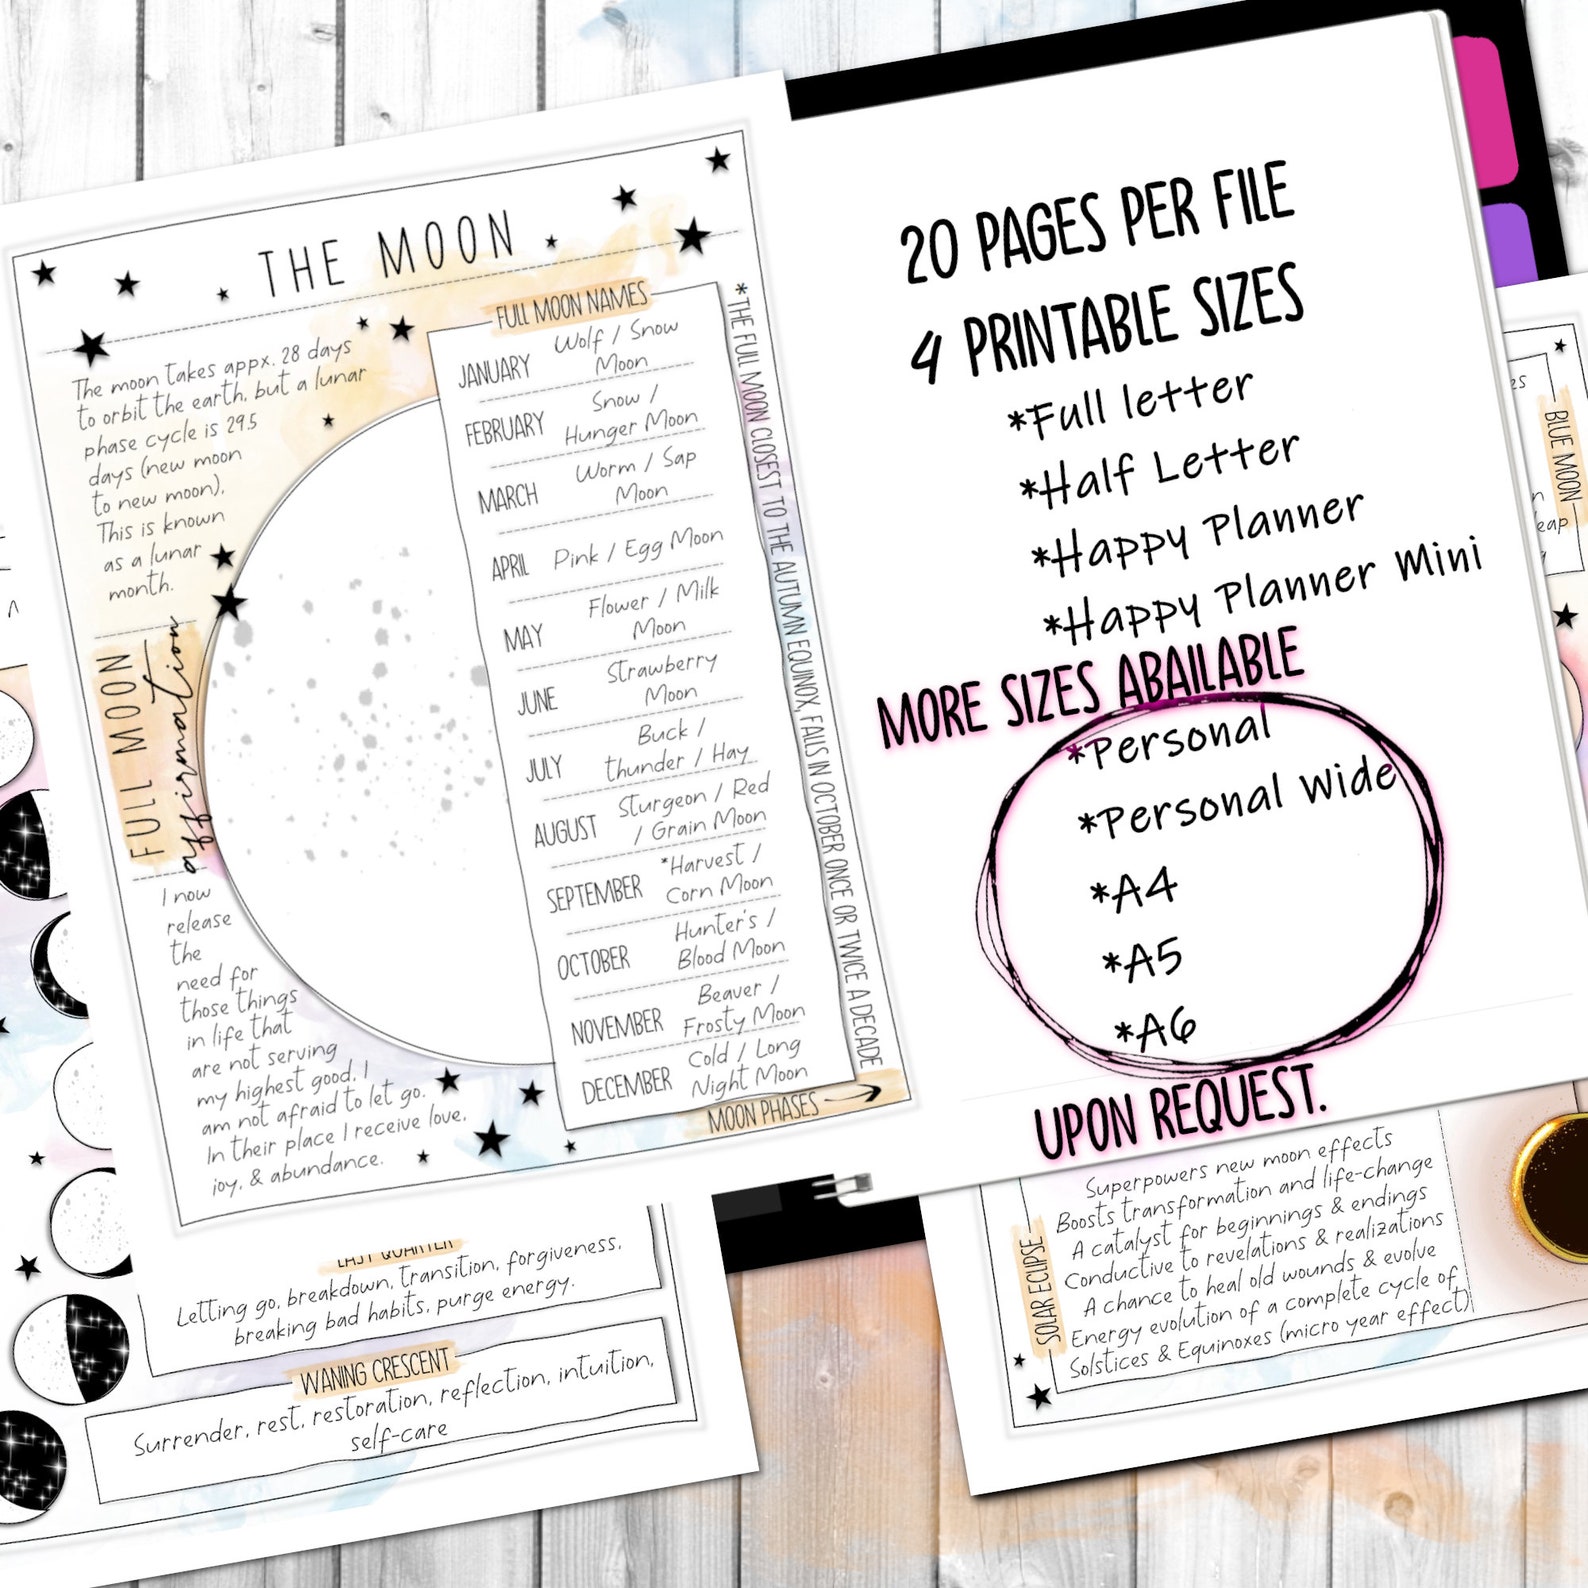 THE MOON
The moon takes appx. 28 days
to orbit the earth, but a lunar
phase cycle is 29.5
days (new moon
to new moon).
This is known
as a lunar
month.
FULL MOON
affirmation
I now
release
the
need for
those things
in life that
are not serving
my highest good. I
am not afraid to let go.
In their place I receive love,
joy, & abundance.
FULL MOON NAMES
JANUARY Wolf / Snow
Moon
FEBRUARY Snow /
Hunger Moon
MARCH Worm / Sap
Moon
APRIL Pink / Egg Moon
MAY Flower / Milk
Moon
JUNE Strawberry
Moon
JULY Buck /
thunder / Hay
AUGUST Sturgeon / Red
/ Grain Moon
SEPTEMBER *Harvest /
Corn Moon
OCTOBER Hunter's /
Blood Moon
NOVEMBER Beaver /
Frosty Moon
DECEMBER Cold / Long
Night Moon
*THE FULL MOON CLOSEST TO THE AUTUMN EQUINOX, FALLS IN OCTOBER ONCE OR TWICE A DECADE
MOON PHASES
20 PAGES PER FILE
4 PRINTABLE SIZES
*Full letter
*Half Letter
*Happy Planner
*Happy Planner Mini
MORE SIZES ABAILABLE
*Personal
*Personal Wide
*A4
*A5
*A6
UPON REQUEST.
BLUE MOON
LAST QUARTER
Letting go, breakdown, transition, forgiveness,
breaking bad habits, purge energy.
WANING CRESCENT
Surrender, rest, restoration, reflection, intuition,
self-care
SOLAR ECLIPSE
Superpowers new moon effects
Boosts transformation and life-change
A catalyst for beginnings & endings
Conductive to revelations & realizations
A chance to heal old wounds & evolve
Energy evolution of a complete cycle of
Solstices & Equinoxes (micro year effect)